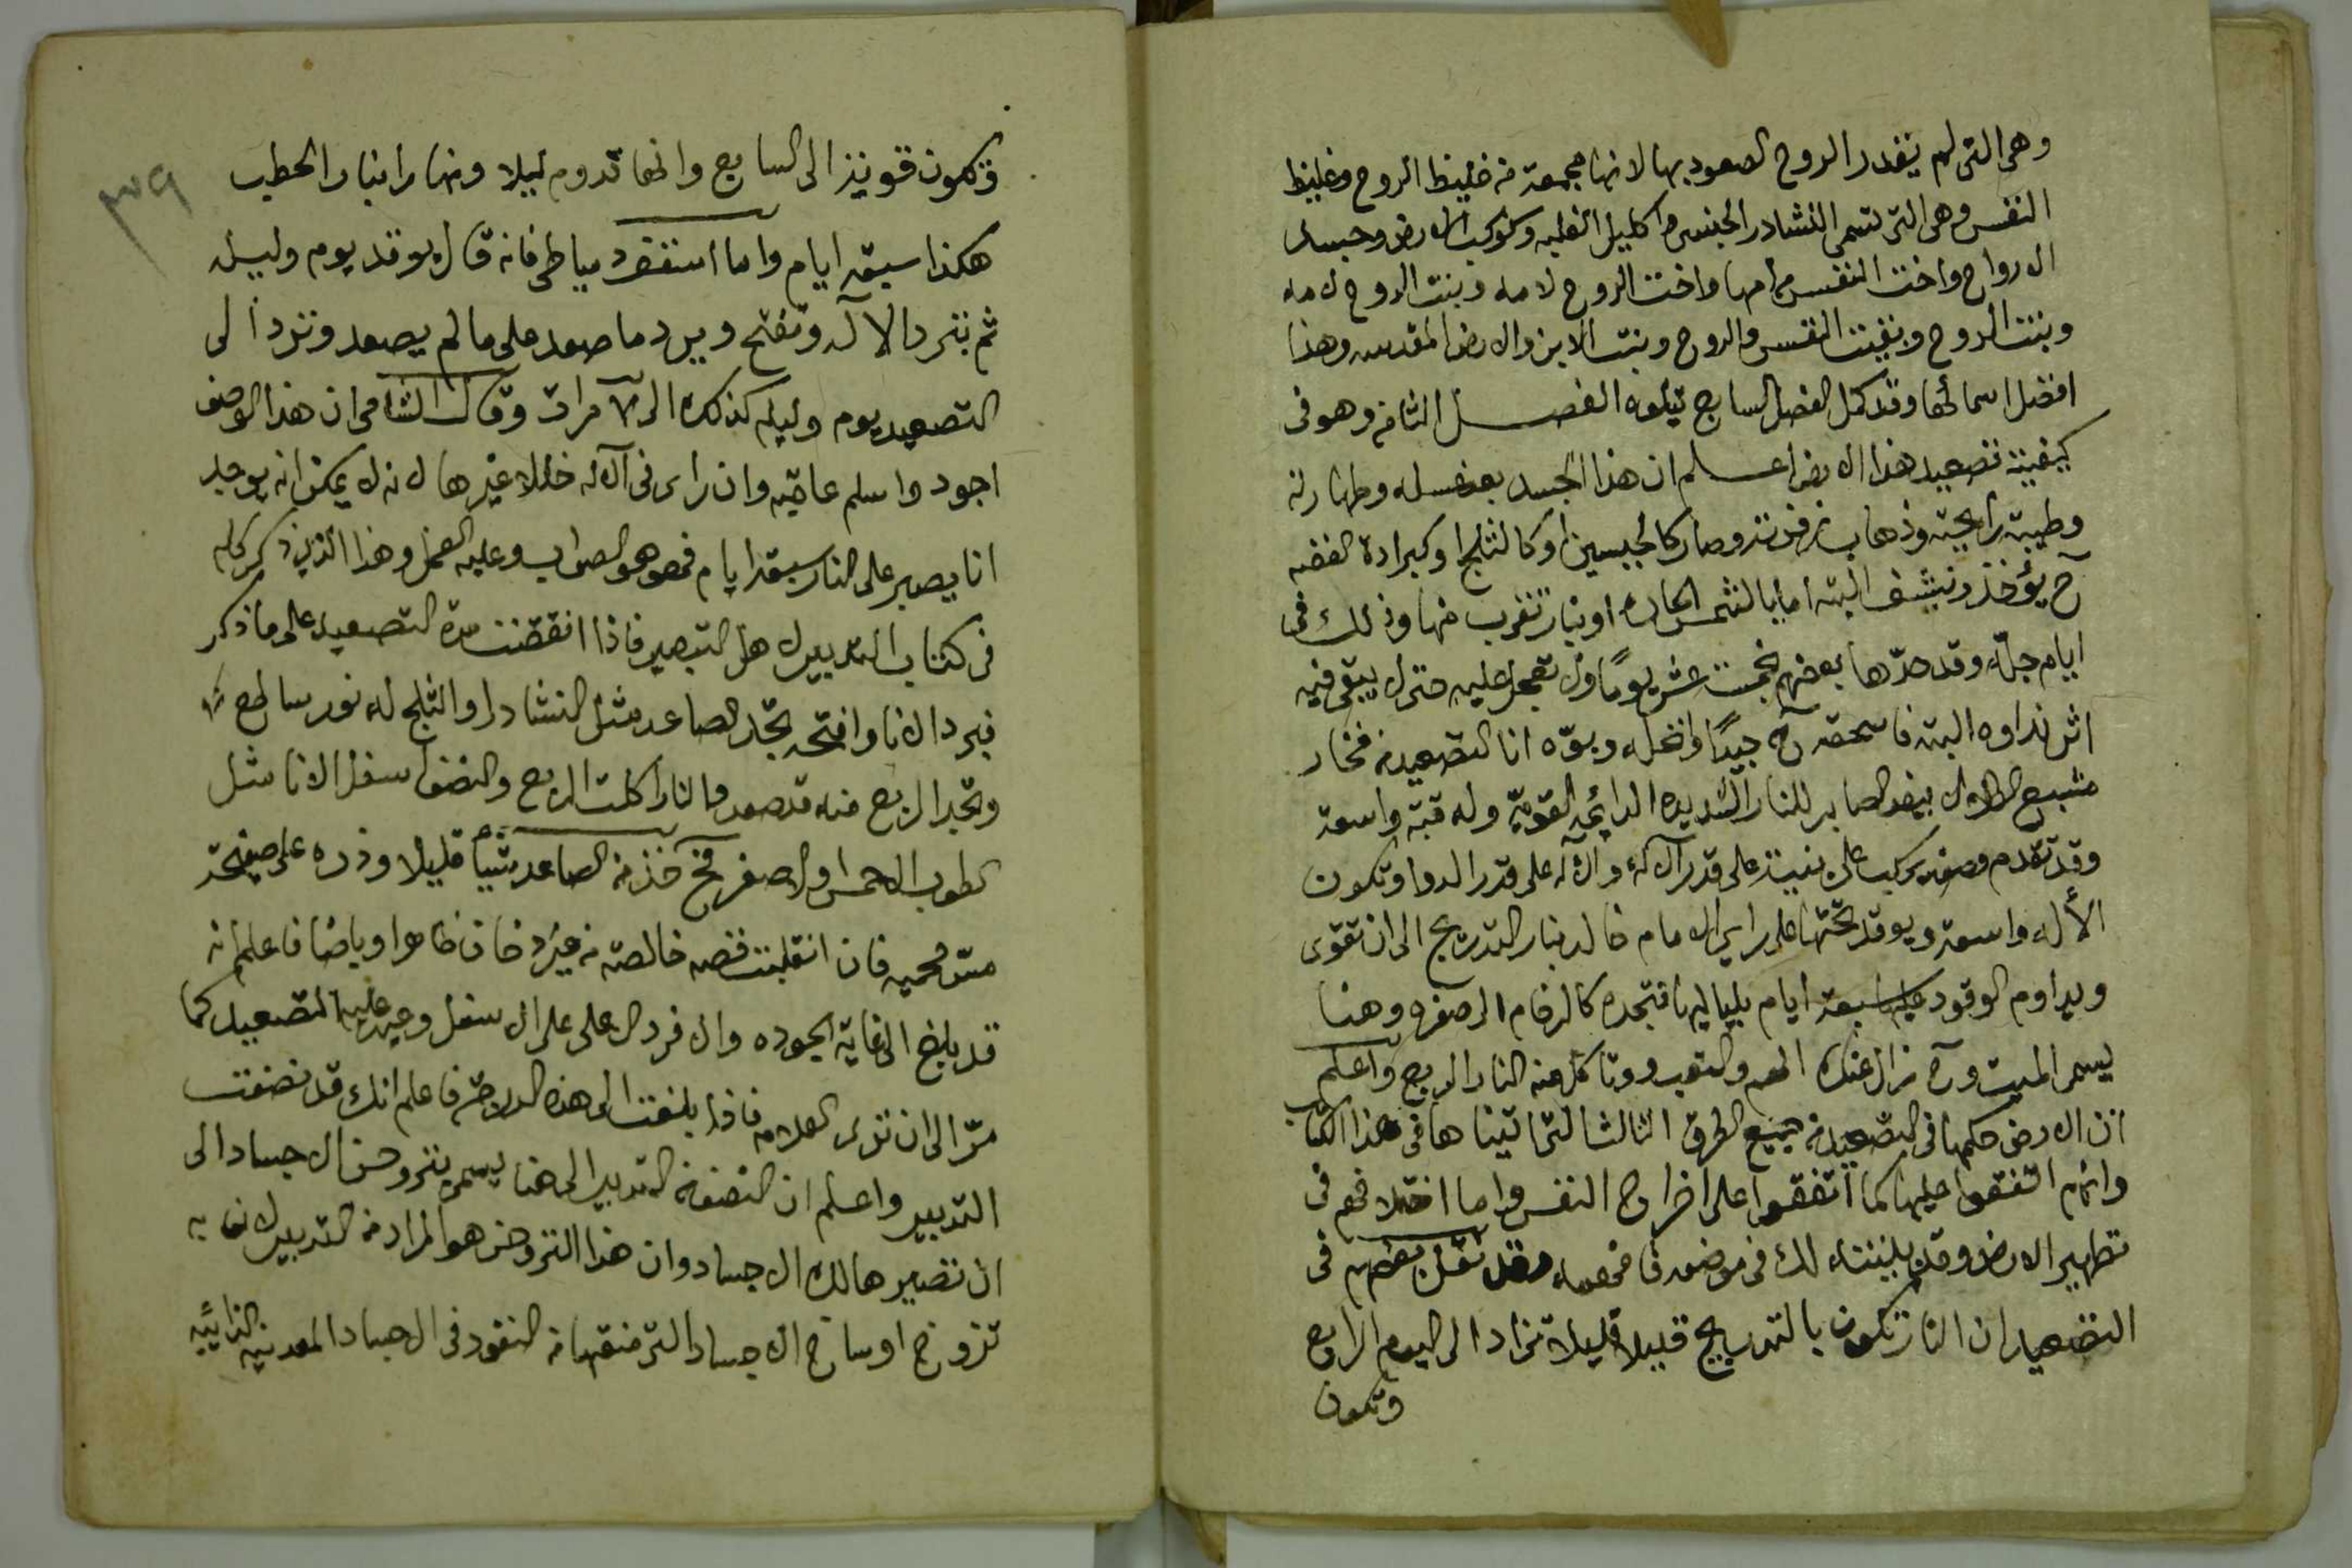 وهى التى لم يقدر الروح الصعود بها لانها مجمعة من غليظ الروح وغليظ
النفس وهى التى تسمى النشادر الجنسى واكليل الغلبه وكوكب الارض وجسد
الارواح واخت النفس من امها واخت الروح لامه وبنت الروح لامه
وبنت الروح وبنت النفس والروح وبنت الابن والارض المقدسه وهذا
افضل اسمائها وقد كمل الفصل السابع يتلوه الفصل الثامن وهو فى
كيفيت تصعيد هذا الارض اعلم ان هذا الجسد بعد غسله وطهارته
وطيبة رايحته وذهاب زفرته وصار كالجبسين او كالثلج او كبرادة الفضه
ح يؤخذ وينشف البته اما بالشمس الحاره او بنار تقرب منها وذلك فى
ايام جملة وقد حدّها بعضهم بخمست عشر يومًا ولا تعجل عليه حتى لا يبقى فيه
اثر نداوه البته فاسحقه ح جيدًا وانخله وبوّه انا التصعيد من فخار
مشبع الطلا الابيض الصابر للنار الشديده الدائمه القويّه وله قبّة واسعة
وقد تقدم وصفه يركب على بنيت على قدر الاله والاله على قدر الدوا وتكون
الأله واسعة ويوقد تحتها على راي الامام خالد بنار التدريج الى ان تقوى
ويداوم الوقود عليها سبعة ايام بلياليها فتجده كالرخام الاصفر وهنا
يسمى الميت وح زال عنك الهم والتعب وتاكل منه النار الربع واعلم
ان الارض حكمها فى التصعيد من جميع الطرق الثالثا التى اتيناها فى هذا الكتاب
وانهم اتفقوا عليها كما اتفقوا على اخراج النفس واما اختلافهم فى
تطهير الارض وقد بينته لك فى موضعه فافهمه وقد نقل بعضهم فى
التصعيد ان النار تكون بالتدريج قليلا قليلا تزاد الى اليوم الرابع
وتكون
٣٩
وتكون قويه الى السابع وانها تدوم ليلا ونهارا بنار الحطب
هكذا سبعة ايام واما اسقف دمياطى فانه قال يوقد يوم وليله
ثم تبرد الاله وتفتح ويرد ما صعد على ما لم يصعد وترد الى
التصعيد يوم وليله كذلك الى ٧ مرات وقال الشامى ان هذا الوصف
اجود واسلم عاقبه وان راى فى الاله خللا غيرها لانه لا يمكن انه يوجد
انا يصبر على النار سبعة ايام فهو هو الصواب وعليه العمل وهذا الذى ذكر كله
فى كتاب التدبير لاهل التبصير فاذا انقضت مدة التصعيد على ما ذكر
فبرد الانا وافتحه تجد الصاعد مثل النشادر او الثلج له نور ساطع
وتجد الربع منه قد صعد والنار اكلت الربع والنصف اسفل الانا مثل
الطوب الاحمر او الاصفر فح خذ من الصاعد شيأ قليلا وذره على صفيحة
مس محميه فان انقلبت فضه خالصة من غير دخان ظاهرا وباطنا فاعلم انه
قد بلغ الى غاية الجوده والا فرد الاعلى على الاسفل وعيد عليه التصعيد كما
مرّ الى ان ترى العلامه فاذا بلغت الى هذه الدرجة فاعلم انك قد نصفت
التدبير واعلم ان النصف من التدبير الى هنا يسمى بتزويج الاجساد الى
ان تصير هالك الاجساد وان هذا التزويج هو المراد من التدبير لان به
تزوج اوساخ الاجساد التى منعتها من النفود فى الاجساد المعدنيه الذائبه